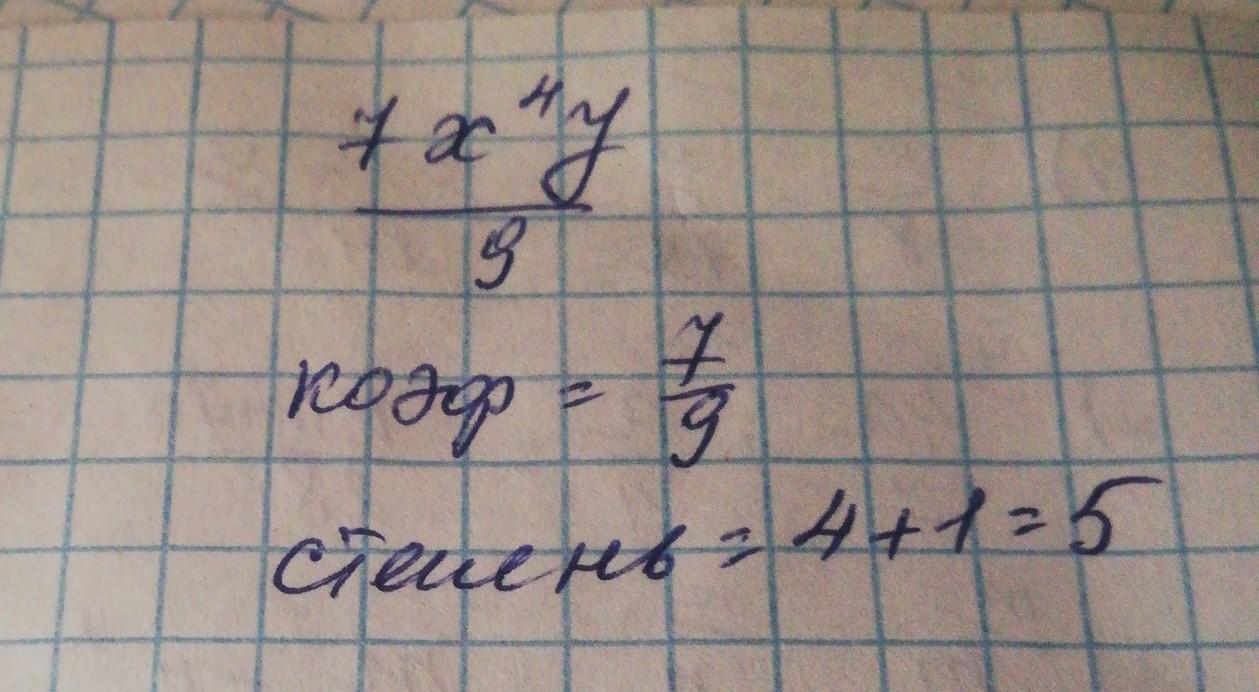 7x⁴y
9
коэф = 7/9
степень = 4+1=5